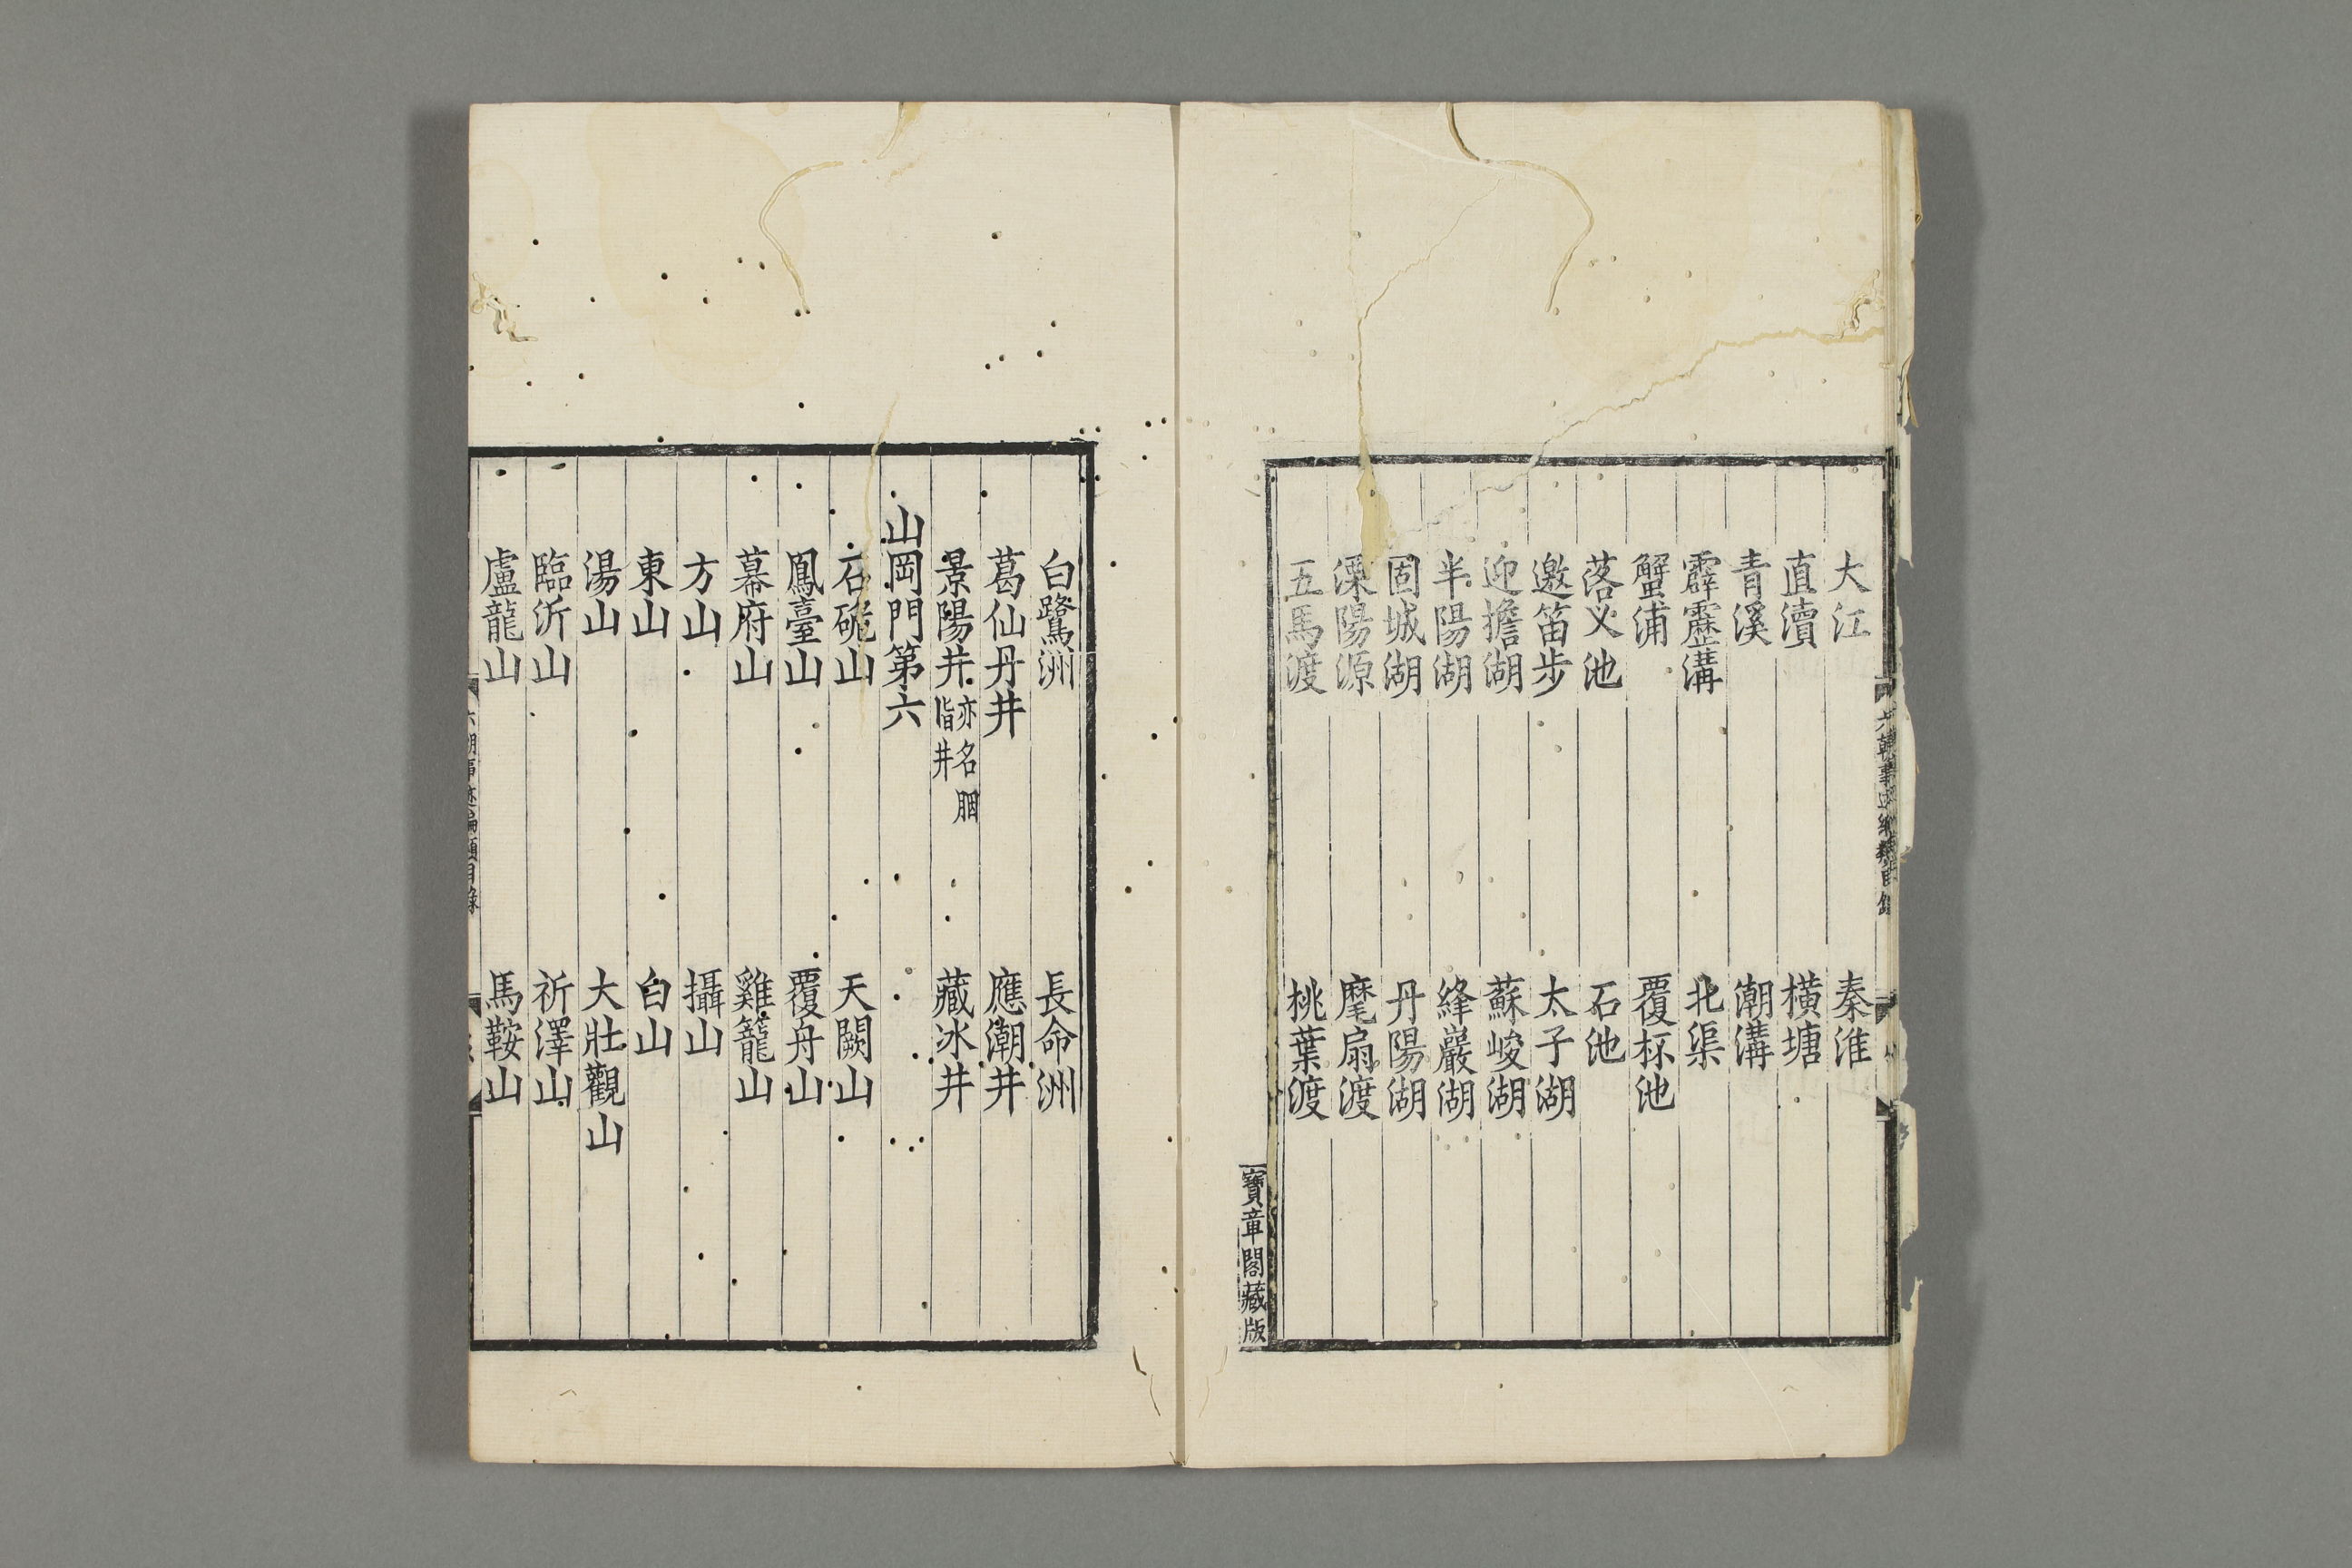 大江 秦淮
直瀆 橫塘
青溪 潮溝
霹靂溝 北渠
蟹浦 覆杯池
落义池 石池
邀笛步 太子湖
迎擔湖 蘇峻湖
半陽湖 絳巖湖
固城湖 丹陽湖
溧陽源 麾扇渡
五馬渡 桃葉渡
寶章閣藏版
白鷺洲 長命洲
葛仙丹井 應潮井
景陽井亦名胭脂井 藏冰井
山岡門第六
石硊山 天闕山
鳳臺山 覆舟山
幕府山 雞籠山
方山 攝山
東山 白山
湯山 大壯觀山
臨沂山 祈澤山
盧龍山 馬鞍山
六朝事迹編類目錄